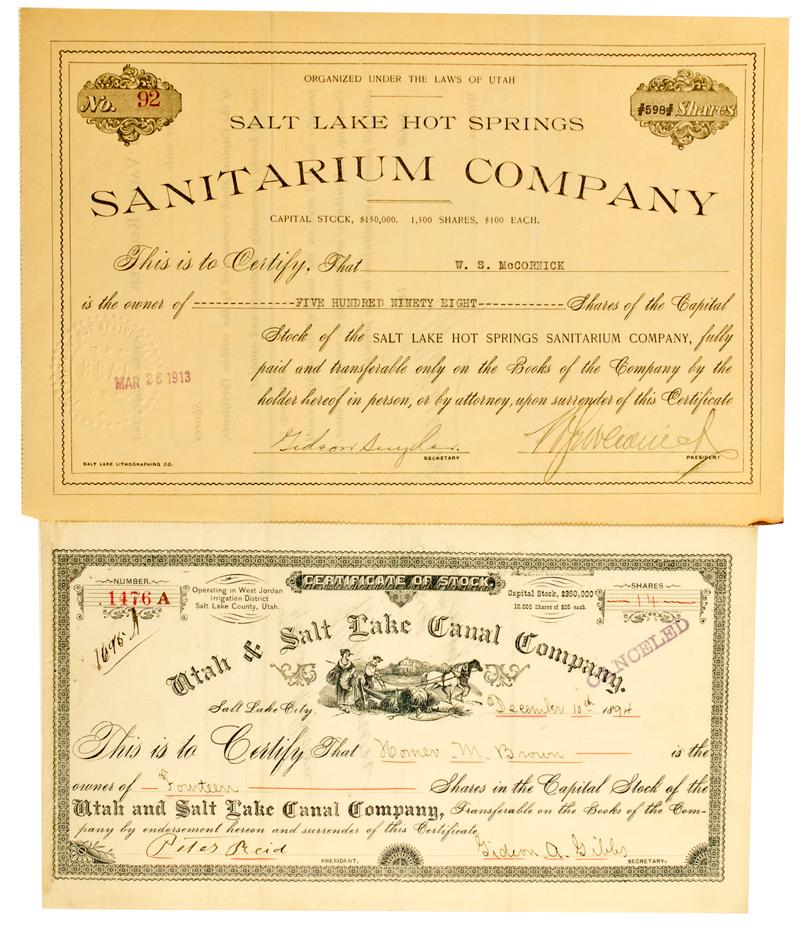 ORGANIZED UNDER THE LAWS OF UTAH
No. 92
#598# Shares
SALT LAKE HOT SPRINGS
SANITARIUM COMPANY
CAPITAL STOCK, $150,000. 1,500 SHARES, $100 EACH.
This is to Certify, That W. S. McCORNICK
is the owner of ------------FIVE HUNDRED NINETY EIGHT------------ Shares of the Capital
Stock of the SALT LAKE HOT SPRINGS SANITARIUM COMPANY, fully
paid and transferable only on the Books of the Company by the
MAR 26 1913
holder hereof in person, or by attorney, upon surrender of this Certificate
Gideon Snyder.
SECRETARY
PRESIDENT
SALT LAKE LITHOGRAPHING CO.
CERTIFICATE OF STOCK
NUMBER.
1476 A
1695 A
Operating in West Jordan
Irrigation District
Salt Lake County, Utah.
Capital Stock, $250,000
10,000 Shares of $25 each.
SHARES
14
Utah & Salt Lake Canal Company.
CANCELED
Salt Lake City, December 10th 1894
This is to Certify That Homer M. Brown is the
owner of Fourteen Shares in the Capital Stock of the
Utah and Salt Lake Canal Company, Transferable on the Books of the Com-
pany by endorsement hereon and surrender of this Certificate
Peter Reid
PRESIDENT.
Gideon A. Gibbs
SECRETARY.